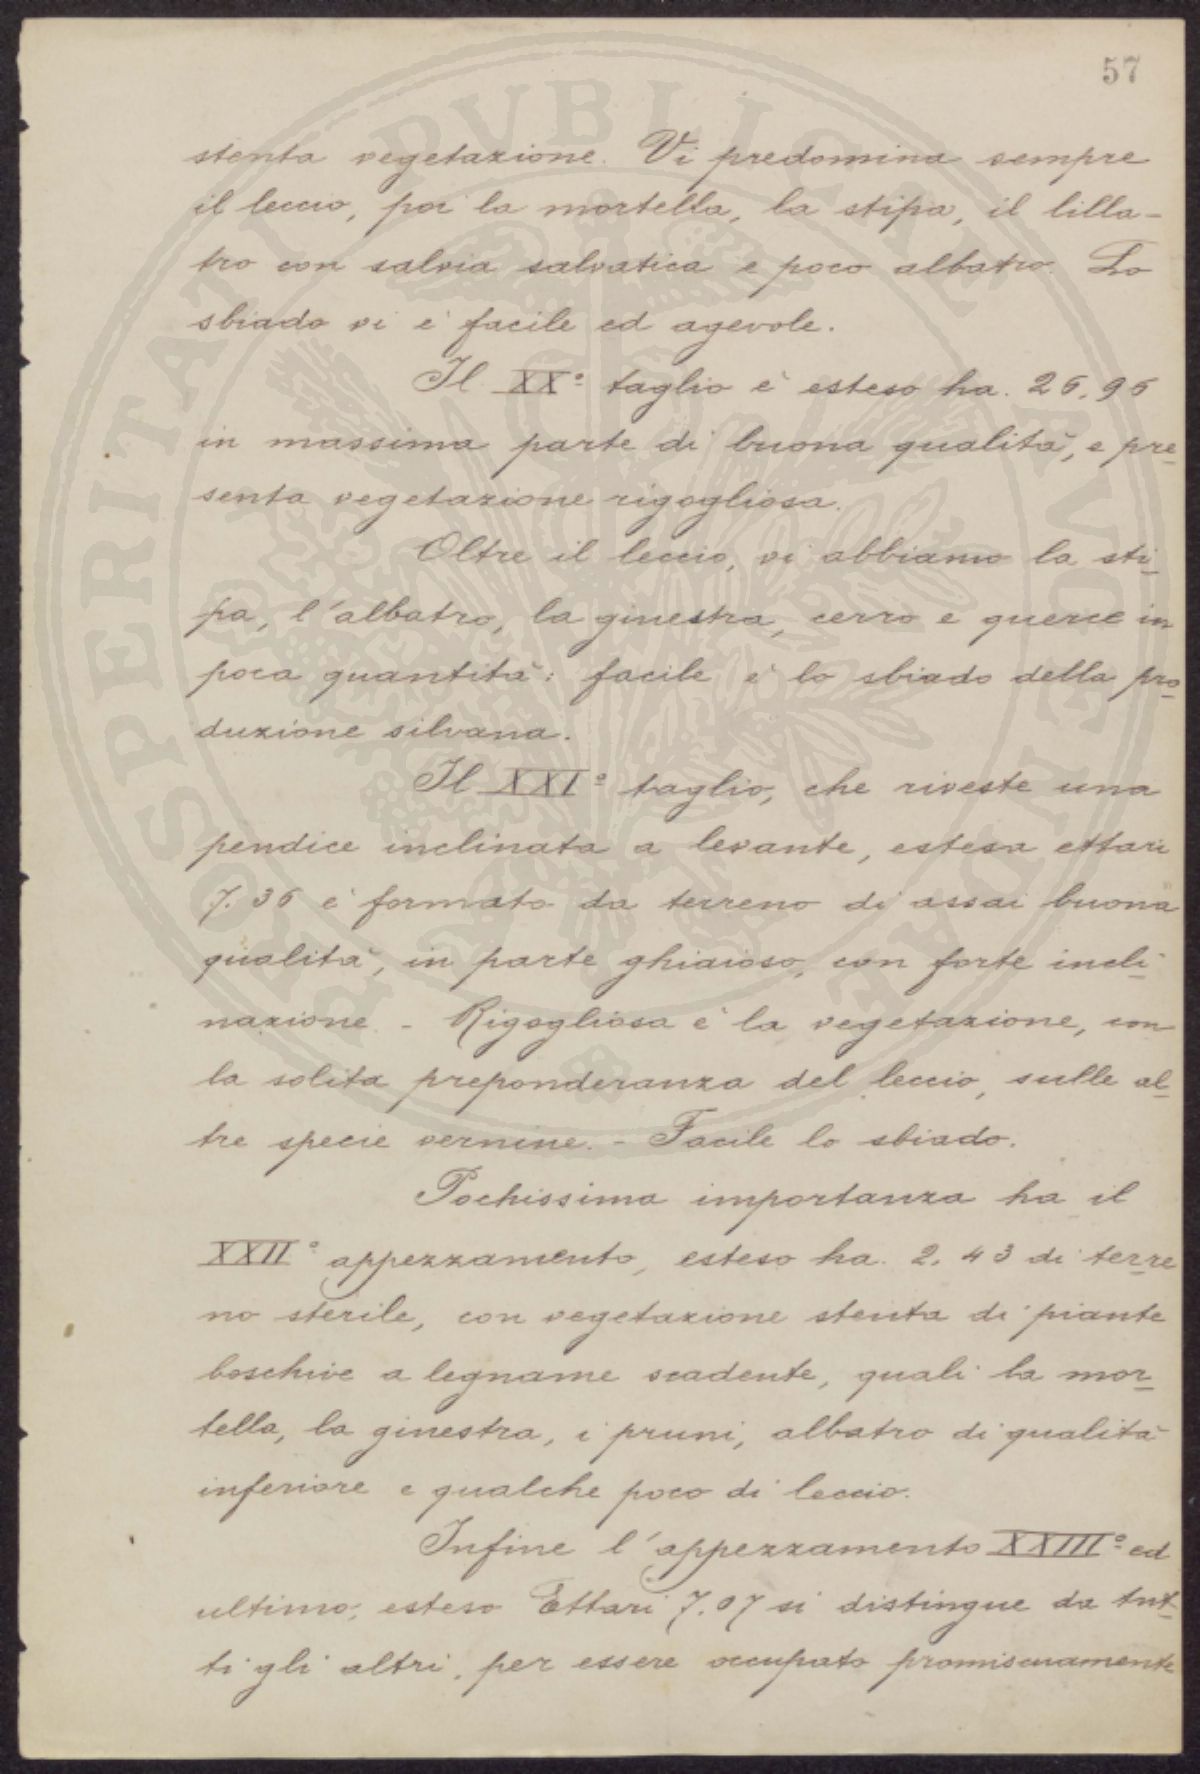 57
stenta vegetazione. Vi predomina sempre
il leccio, poi la mortella, la stipa, il lilla-
tro con salvia salvatica e poco albatro. Lo
sbiado vi è facile ed agevole.
Il XXº taglio è esteso ha. 26.96
in massima parte di buona qualità, e pre-
senta vegetazione rigogliosa.
Oltre il leccio, vi abbiamo la sti-
pa, l'albatro, la ginestra, cerro e querce in
poca quantità: facile è lo sbiado della pro-
duzione silvana.
Il XXIº taglio, che riveste una
pendice inclinata a levante, estesa ettari
7.36 è formato da terreno di assai buona
qualità, in parte ghiaioso, con forte incli-
nazione. - Rigogliosa è la vegetazione, con
la solita preponderanza del leccio, sulle al-
tre specie vernine. - Facile lo sbiado.
Pochissima importanza ha il
XXIIº appezzamento, esteso ha. 2.43 di terre
no sterile, con vegetazione stenta di piante
boschive a legname scadente, quali la mor-
tella, la ginestra, i pruni, albatro di qualità
inferiore e qualche poco di leccio.
Infine l'appezzamento XXIIIº ed
ultimo, esteso Ettari 7.07 si distingue da tut-
ti gli altri, per essere occupato promiscuamente
PROSPERITATI PVBLICAE AVGENDAE